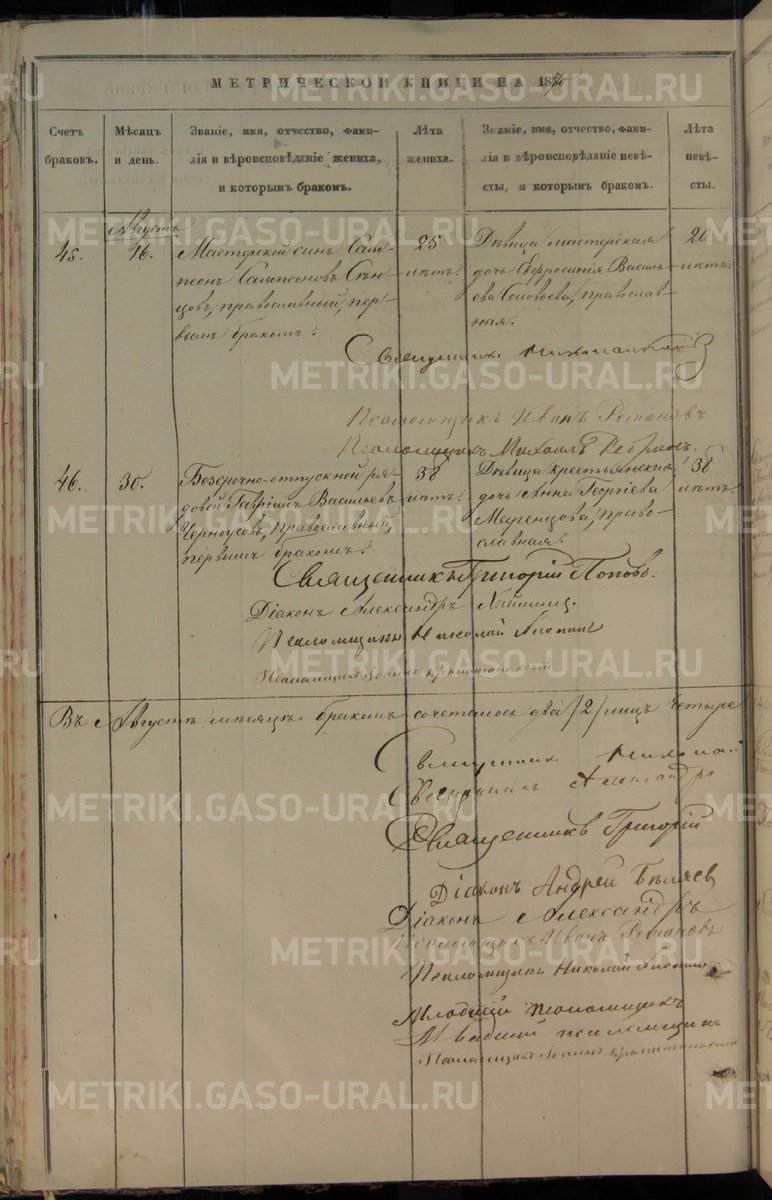 МЕТРИЧЕСКОЙ КНИГИ НА 1870
Счетъ браковъ.
Мѣсяцъ и день.
Званіе, имя, отчество, фами-
лія и вѣроисповѣданіе жениха,
и которымъ бракомъ.
Лѣта жениха.
Званіе, имя, отчество, фами-
лія и вѣроисповѣданіе невѣ-
сты, и которымъ бракомъ.
Лѣта невѣ-
сты.
Августъ
45.
16.
Мастерской сынъ Сам-
псонъ Сампсоновъ
цовъ, православный, пер-
вымъ бракомъ.
25
лѣтъ.
Дѣвица мастерская
дочь Евфросинія Василь-
ева Соловьева, православ-
ная.
20
лѣтъ.
Священникъ
Псаломщикъ Иванъ Романовъ
Псаломщикъ Михаилъ Ребринъ.
46.
30.
Безсрочно-отпускной ря-
довой Гавріилъ Васильевъ
Черноусовъ, православный,
первымъ бракомъ.
38
лѣтъ.
Дѣвица крестьянская
дочь Анна Георгіева
право-
славная.
38
лѣтъ.
Священникъ Григорій Поповъ.
Діаконъ Александръ
Псаломщикъ Николай
Псаломщикъ Іоаннъ
Въ Августѣ мѣсяцѣ бракомъ сочеталось два /2/ лицъ четыре
Священникъ Николай
Священникъ Александръ
Священникъ Григорій
Діаконъ Андрей Бѣляев
Діаконъ Александръ
Псаломщикъ Иванъ Романовъ
Псаломщикъ Николай
Младшій псаломщикъ
Младшій псаломщикъ
Псаломщикъ Іоаннъ
METRIKI.GASO-URAL.RU